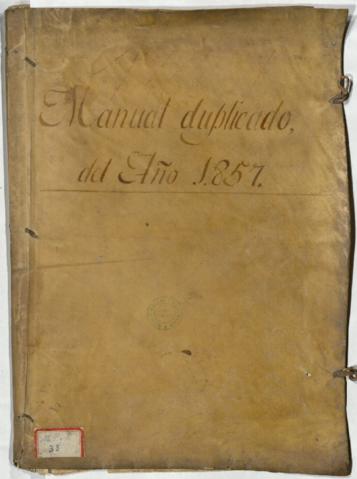 Manual duplicado,
del Año 1.857.
38